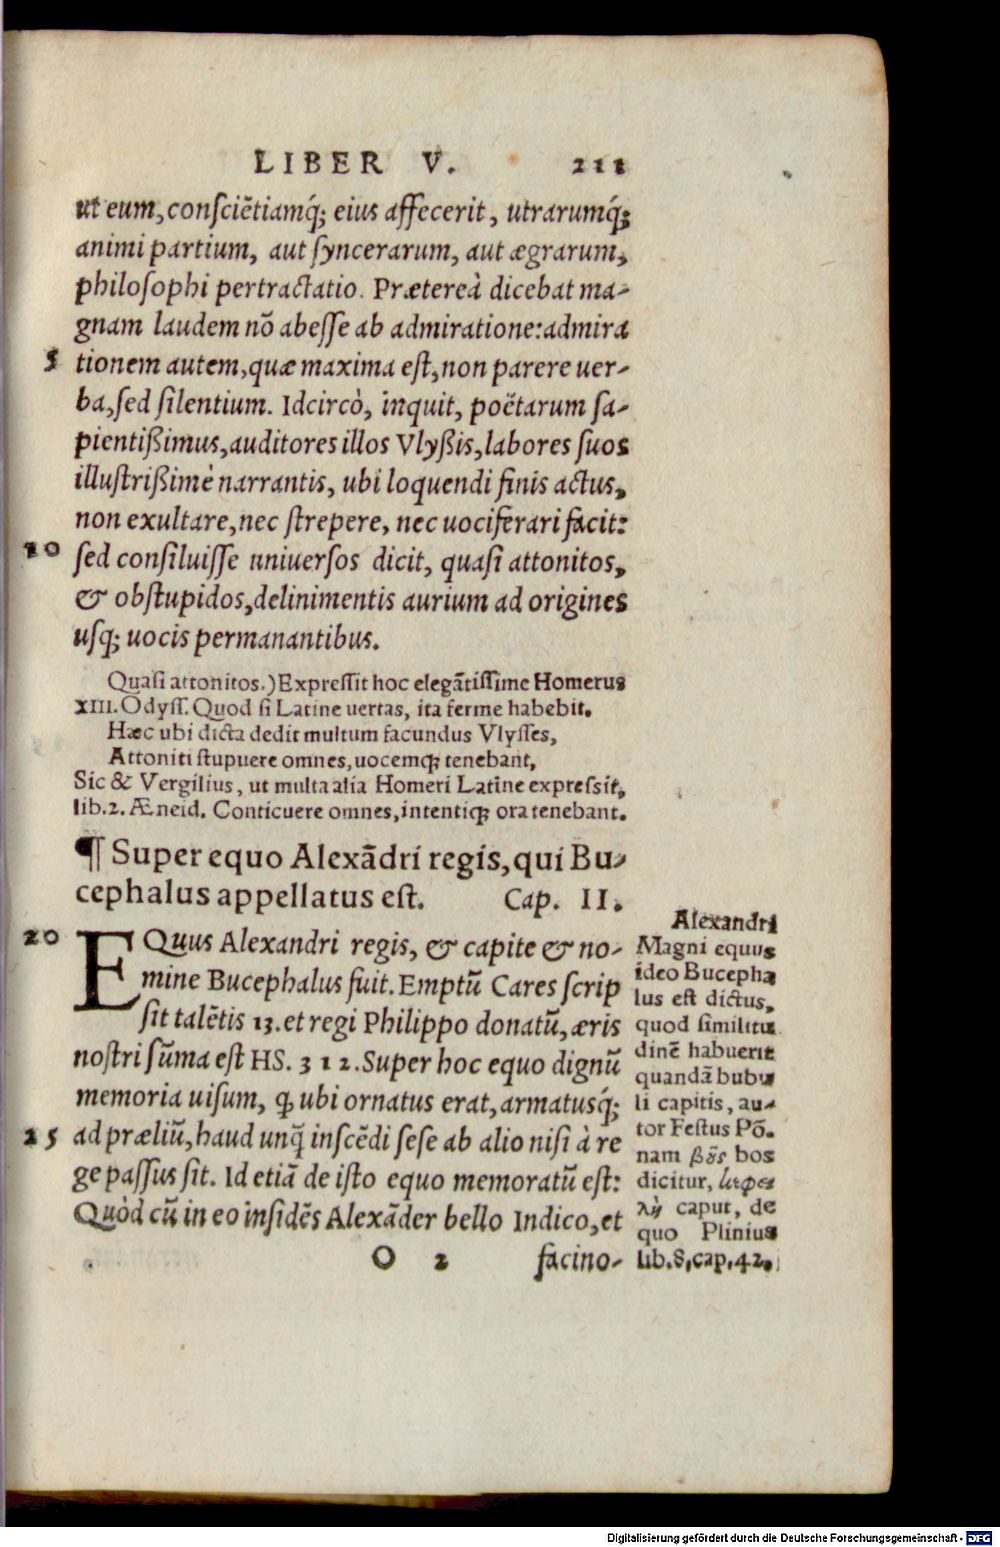 LIBER V. 211
ut eum, conſciẽtiamq́; eius affecerit, utrarumq́;
animi partium, aut ſyncerarum, aut ægrarum,
philoſophi pertractatio. Prætereà dicebat ma-
gnam laudem nõ abeſſe ab admiratione: admira
5 tionem autem, quæ maxima eſt, non parere uer-
ba, ſed ſilentium. Idcircò, inquit, poëtarum ſa-
pientißimus, auditores illos Vlyßis, labores ſuos
illuſtrißimè narrantis, ubi loquendi finis actus,
non exultare, nec ſtrepere, nec uociferari facit:
10 ſed conſiluiſſe uniuerſos dicit, quaſi attonitos,
& obſtupidos, delinimentis aurium ad origines
uſq; uocis permanantibus.
Quaſi attonitos.) Expreſſit hoc elegãtiſſime Homerus
XIII. Odyſſ. Quod ſi Latine uertas, ita ferme habebit.
Hæc ubi dicta dedit multum facundus Vlyſſes,
Attoniti ſtupuere omnes, uocemq; tenebant,
Sic & Vergilius, ut multa alia Homeri Latine expreſſit,
lib. 2. Æneid. Conticuere omnes, intentiq; ora tenebant.
¶ Super equo Alexãdri regis, qui Bu-
cephalus appellatus eſt. Cap. II.
20 EQuus Alexandri regis, & capite & no-
mine Bucephalus fuit. Emptũ Cares ſcrip
ſit talẽtis 13. et regi Philippo donatũ, æris
noſtri ſũma eſt HS. 312. Super hoc equo dignũ
memoria uiſum, ꝙ ubi ornatus erat, armatusq́;
25 ad præliũ, haud unq̃ inſcẽdi ſeſe ab alio niſi à re
ge paſſus ſit. Id etiã de iſto equo memoratũ eſt:
Quòd cũ in eo inſidẽs Alexãder bello Indico, et
O 2 facino-
Alexandri
Magni equus
ideo Bucepha
lus eſt dictus,
quod ſimilitu
dinẽ habuerit
quandã bubu
li capitis, au-
tor Feſtus Põ.
nam βο͂ς bos
dicitur, κεφα
λὴ caput, de
quo Plinius
lib. 8, cap, 42.
Digitalisierung gefördert durch die Deutsche Forschungsgemeinschaft - DFG